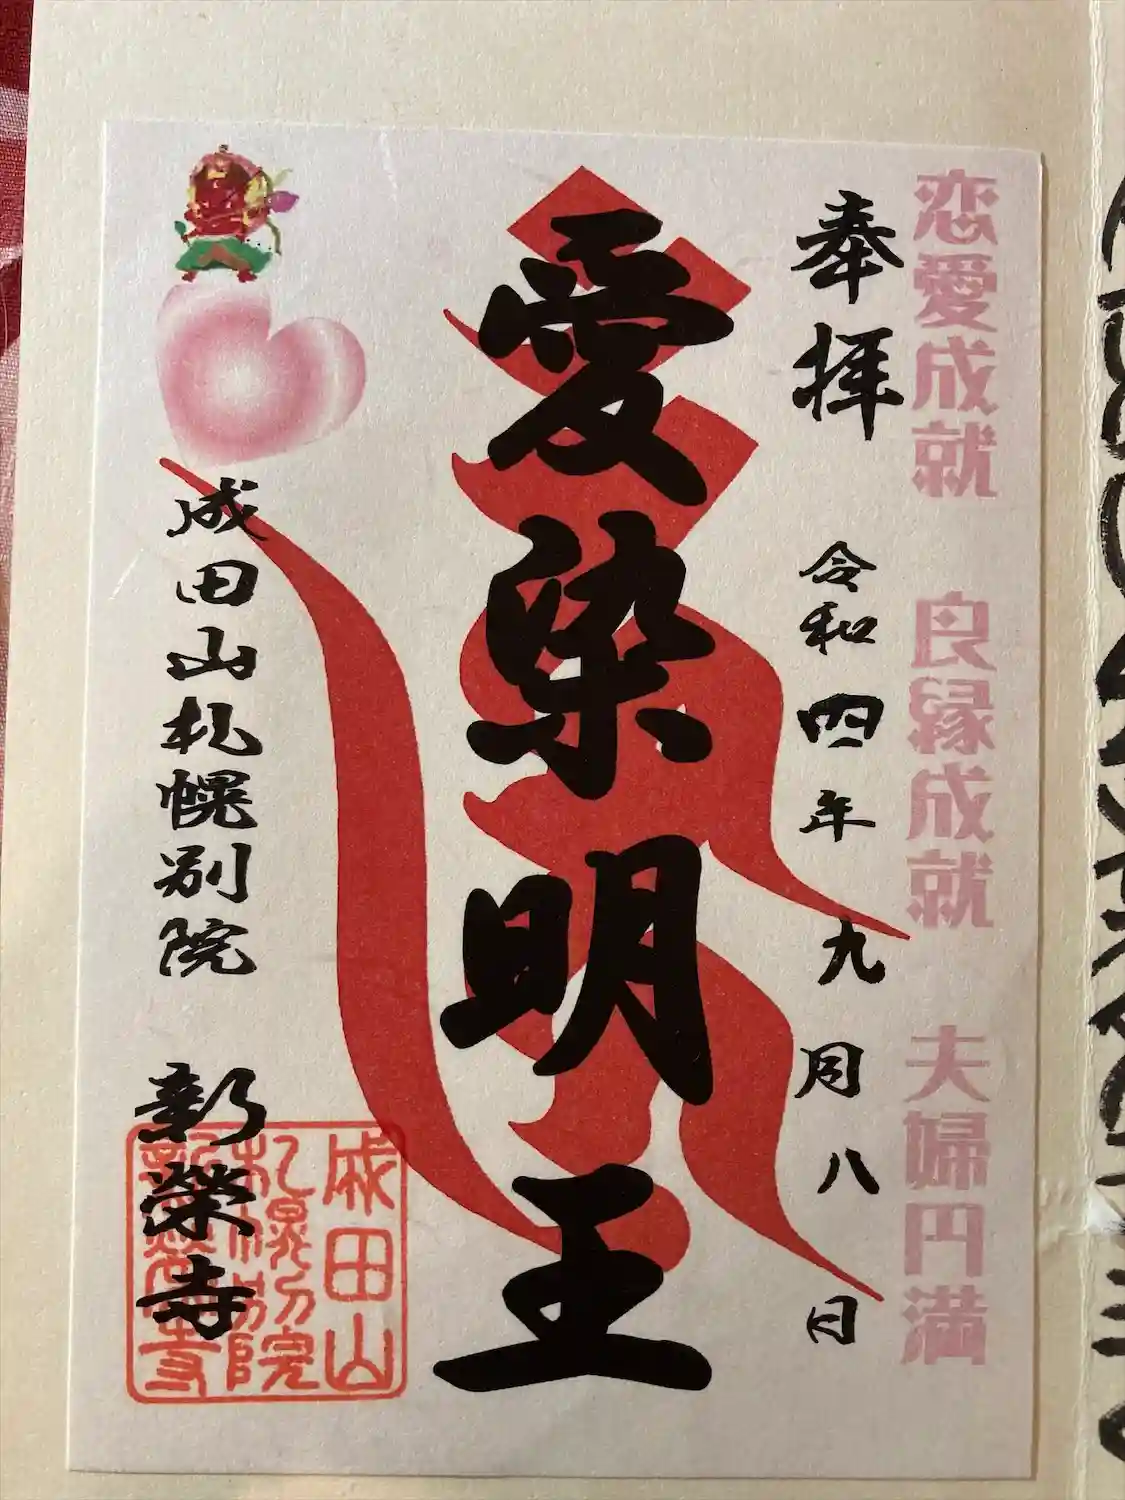 恋愛成就 良縁成就 夫婦円満
奉拝 令和四年九月八日
愛染明王
成田山札幌別院 新榮寺
成田山
札幌別院
新榮寺